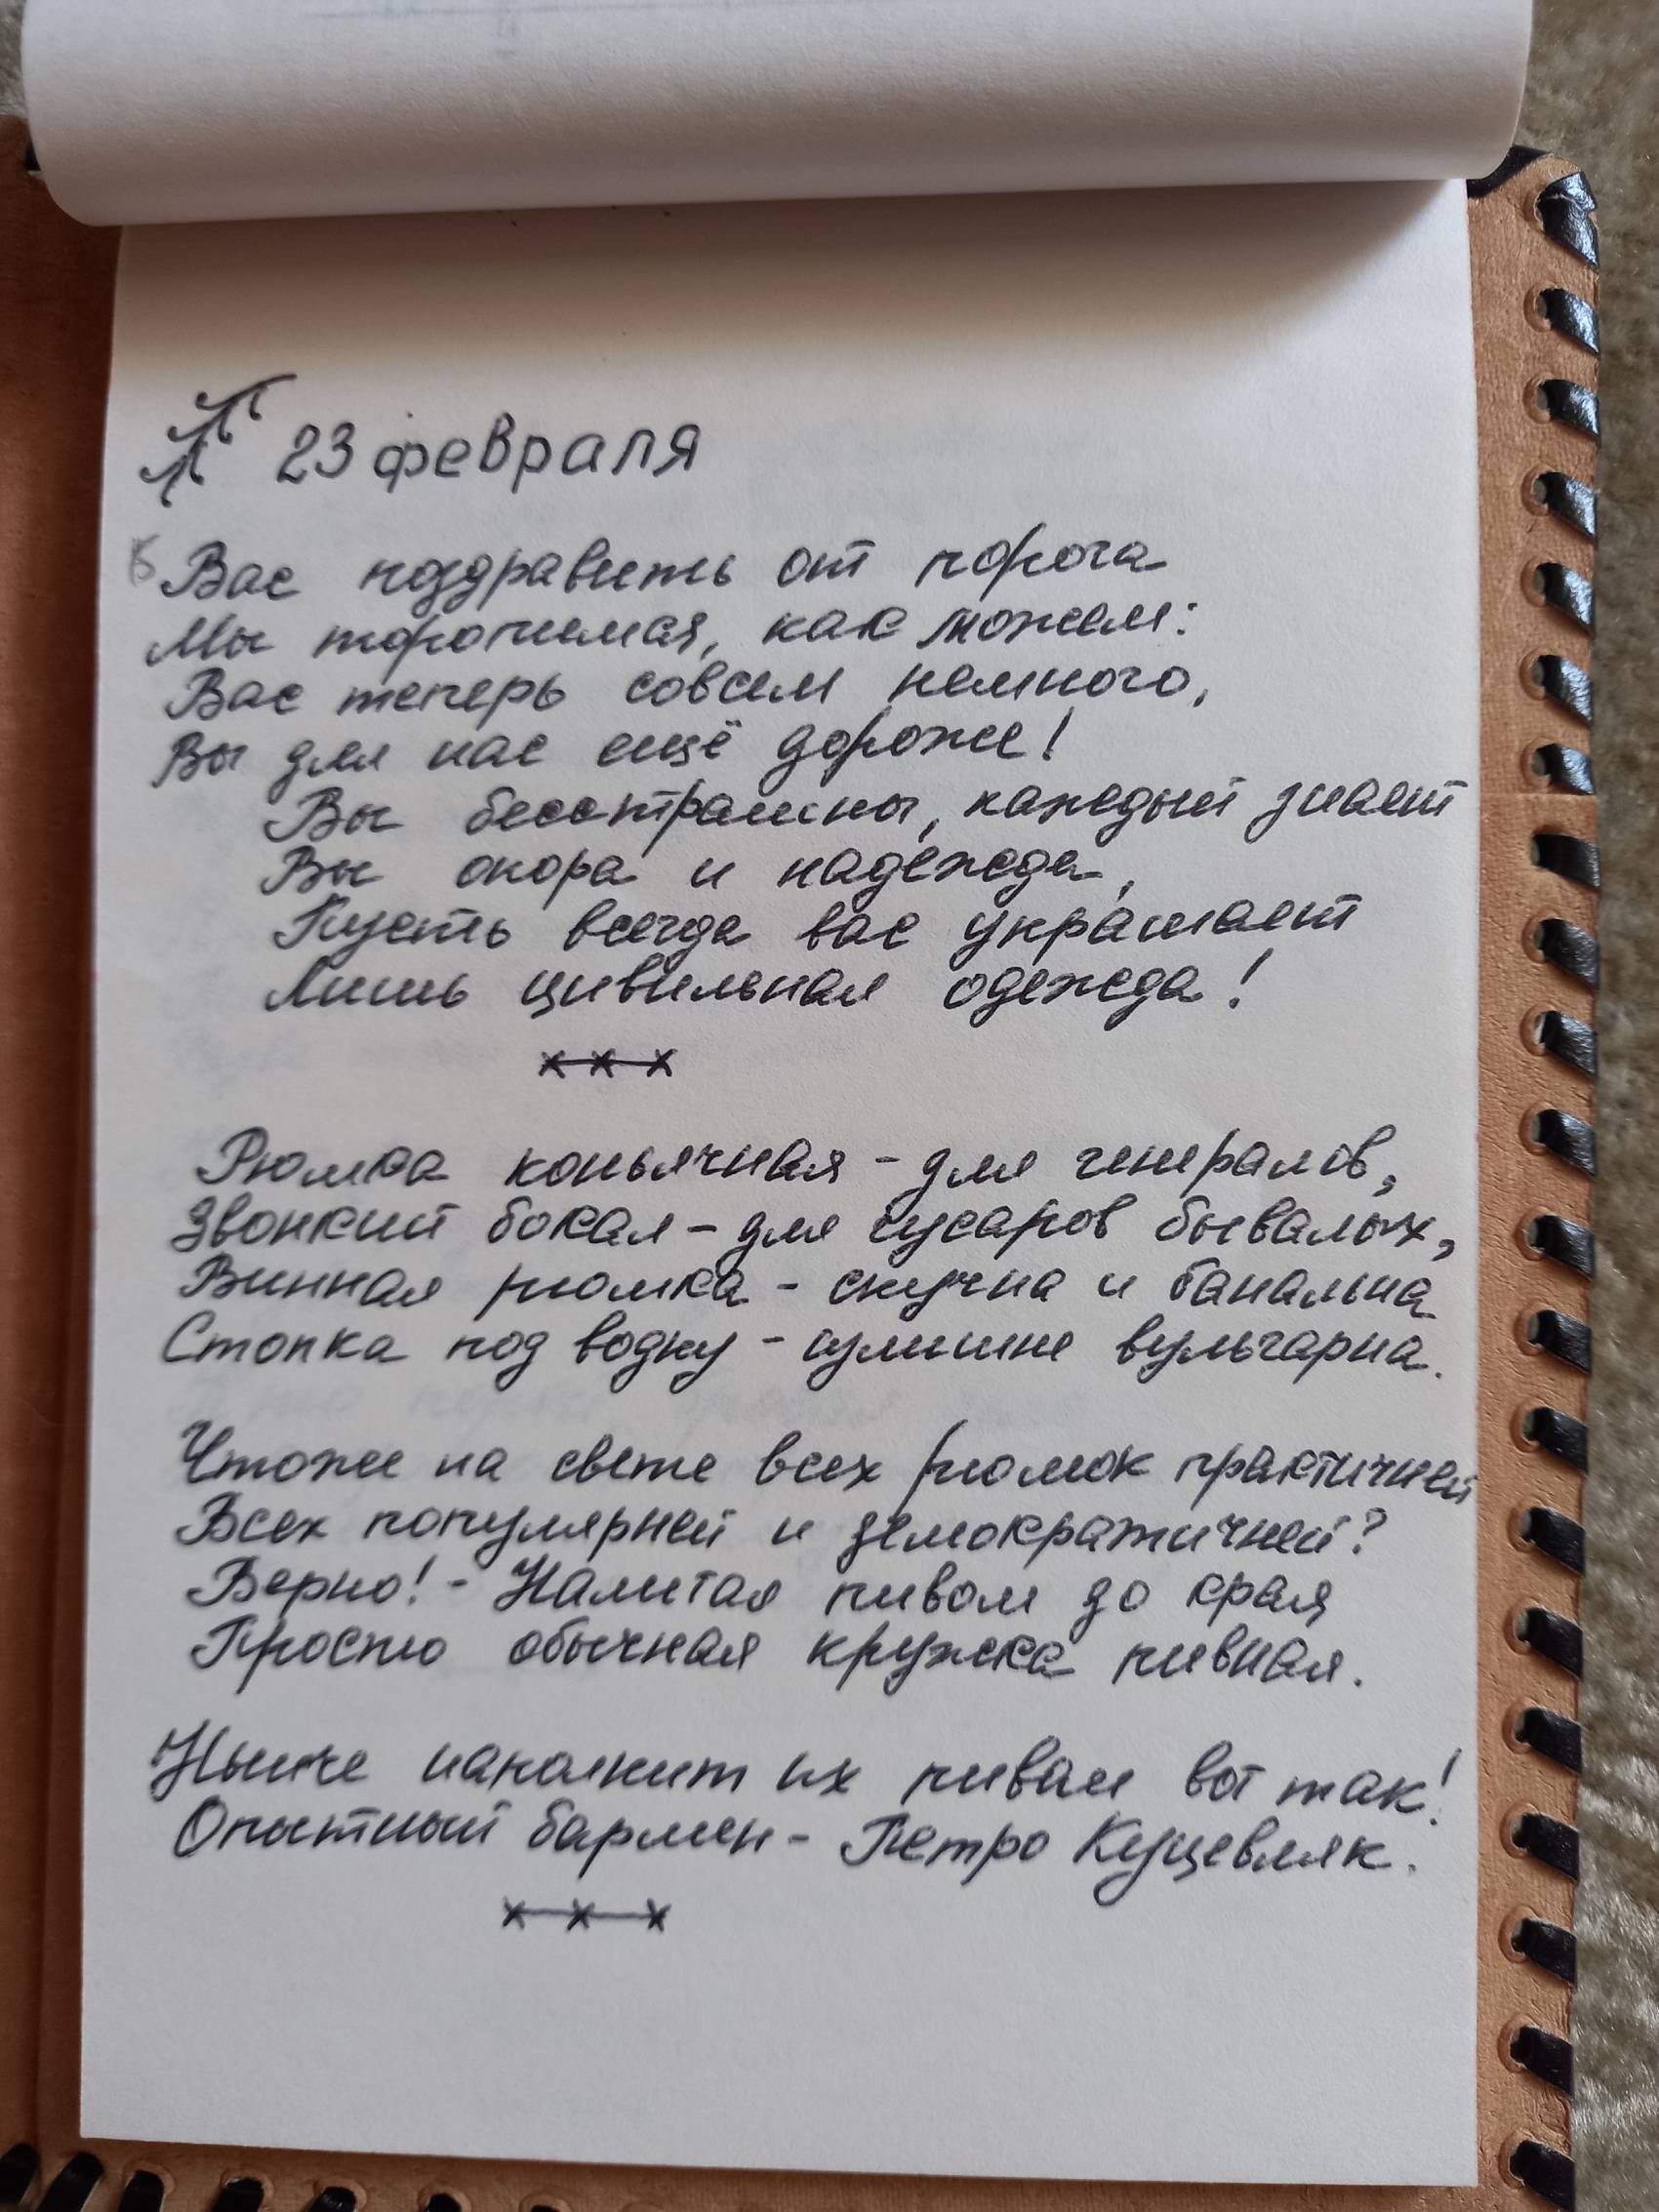 23 февраля
Вас поздравить от порога
Мы торопимся, как можем:
Вас теперь совсем немного,
Вы для нас ещё дороже!
Вы бесстрашны, каждый знает
Вы опора и надежда,
Пусть всегда вас украшает
Лишь цивильная одежда!
х х х
Рюмка коньячная - для генералов,
Звонкий бокал - для гусаров бывалых,
Винная рюмка - скучна и банальна
Стопка под водку - излишне вульгарна.
Чтоже на свете всех рюмок практичней
Всех популярней и демократичней?
Верно! - Налитая пивом до края
Просто обычная кружка пивная.
Нынче наполнит их пивом вот так!
Опытный бармен - Петро Куцевляк.
х х х